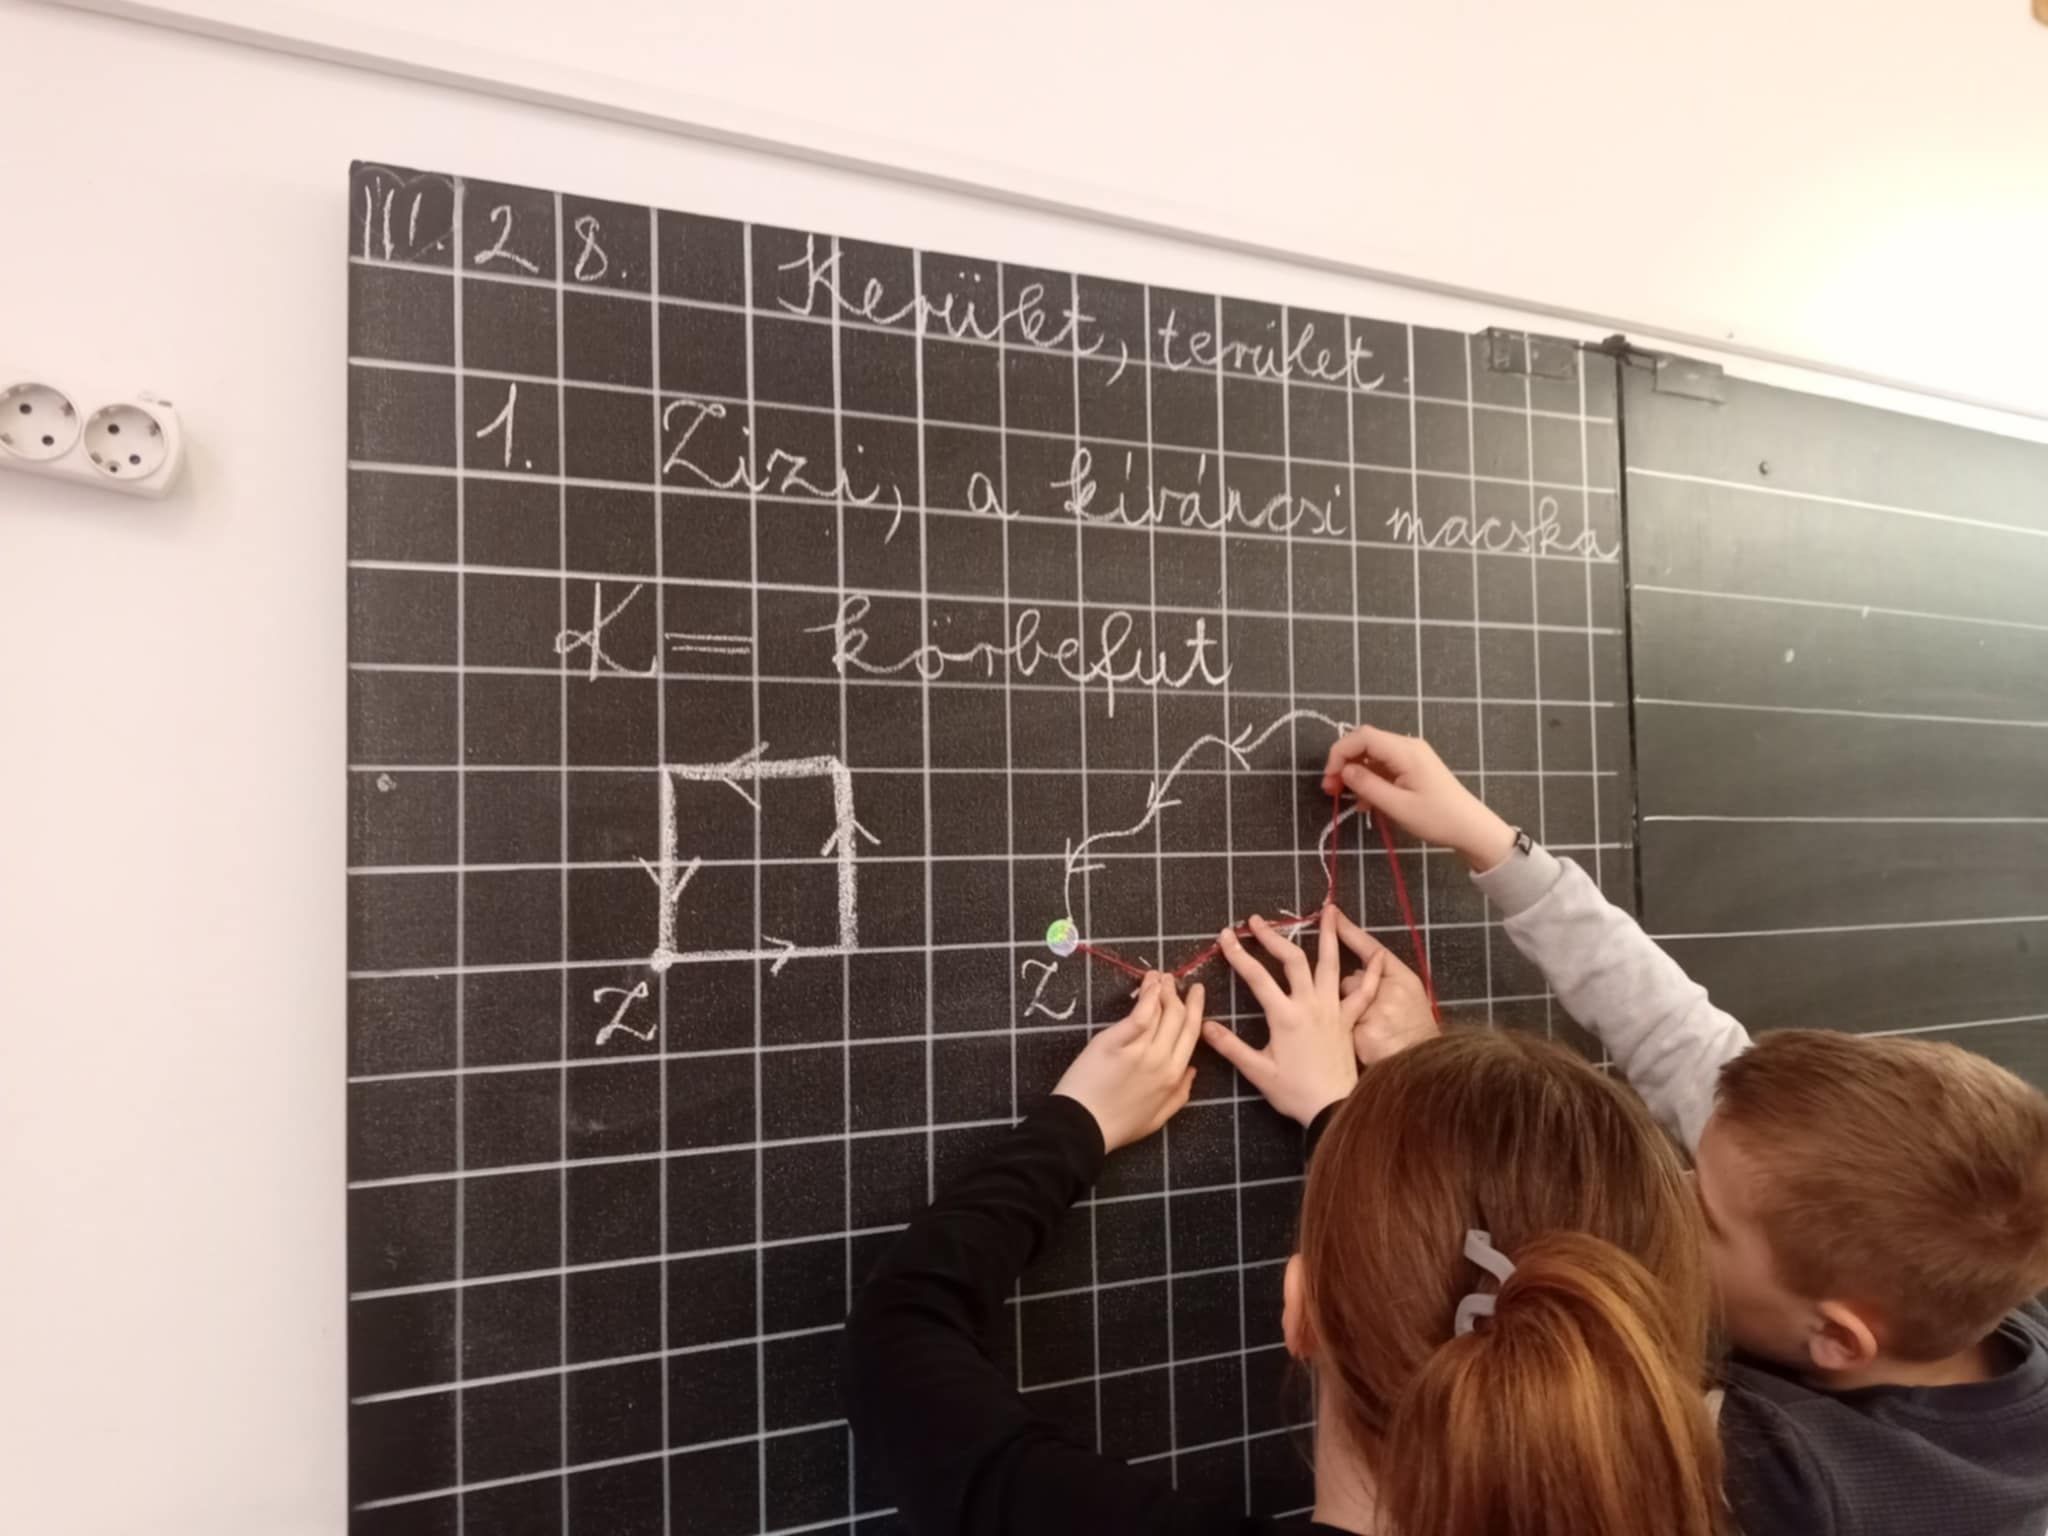 III. 28. Kerület, terület.
1. Zizi, a kíváncsi macska
K = körbefut
Z
Z